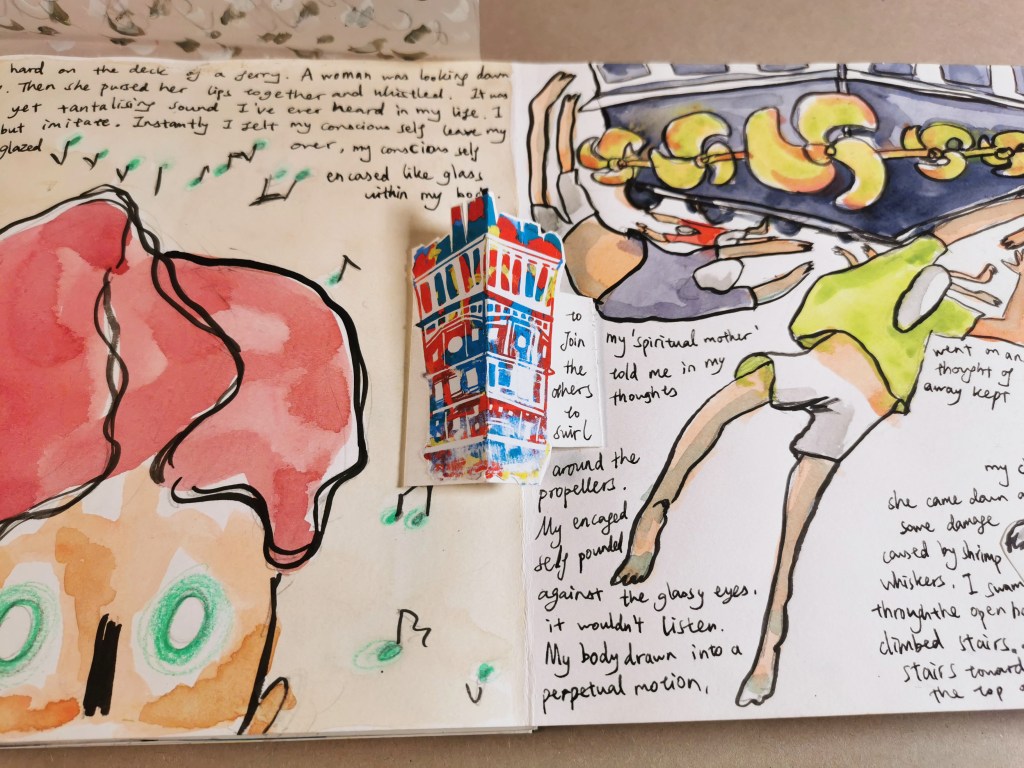 hard on the deck of a ferry. A woman was looking down
. Then she pursed her lips together and whistled. It was
yet tantalising sound I've ever heard in my life. I
but imitate. Instantly I felt my conscious self leave my
glazed over, my conscious self
encased like glass
within my bo
to
Join
the
others
to
swirl
my 'spiritual mother'
told me in my
thoughts
around the
propellers.
My encaged
self pounded
against the glassy eyes.
it wouldn't listen.
My body drawn into a
perpetual motion,
went on an
thought of
away kept
my c
she came down a
some damage
caused by shrimp
whiskers. I swam
through the open
climbed stairs..
stairs toward
the top